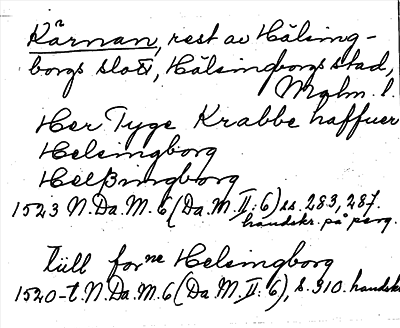 Kärnan, rest av Hälsing-
borgs slott, Hälsingborgs stad,
Mlm. l.
Her Tyge Krabbe haffuer
Helsingborg
Helßingborg
1523 N.Da.M.6 (Da.M.II:6) ss. 283, 287.
handskr. på perg.
tiill forne Helsingborg
1520-t. N.Da.M.6 (Da.M.II:6), s. 310. handskr